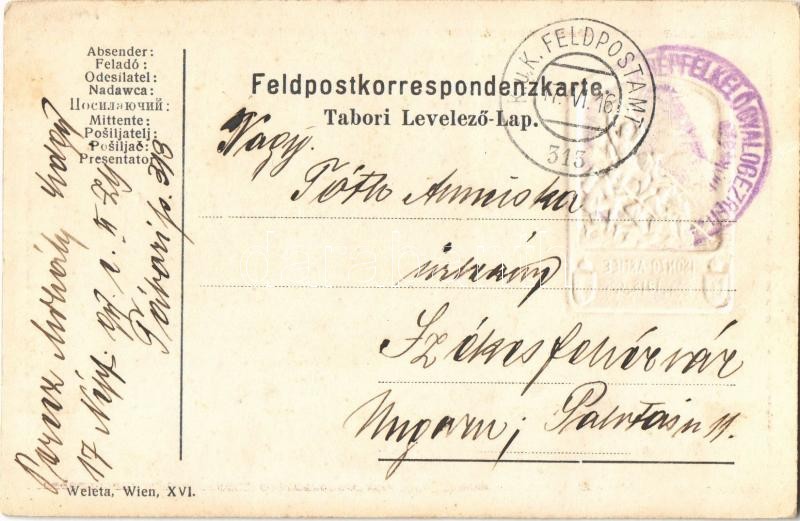 Absender:
Feladó:
Odesílatel:
Nadawca:
Посилаючий:
Mittente:
Pošiljatelj:
Pošiljač:
Presentator
Feldpostkorrespondenzkarte.
Tabori Levelező-Lap.
K.u.K. FELDPOSTAMT
VI. 16
313
Nagys.
Tóth Annuska
úrleány
Székesfehérvár
Ungarn; Palotai u
Mihály
17 Népf. gy. e. II
Tábori p. 313
Weleta, Wien, XVI.